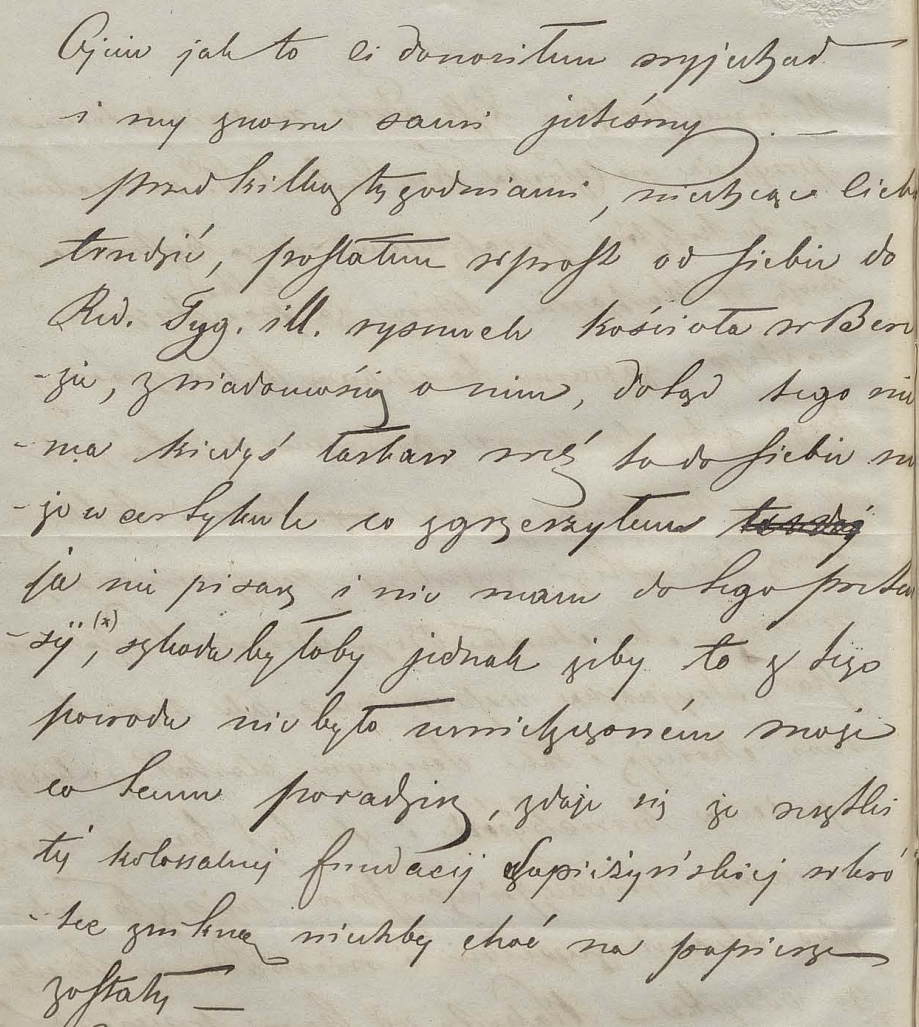 Ojciec jak to ci donosiłem wyjechał
i my znowu sami jesteśmy . —
przed kilką tygodniami, niechcąc Ciebie
trudzić, posłałem wprost od siebie do
Red. Tyg. ill. rysunek kościoła w Bere
-zie, z wiadomością o nim, dotąd tego nie
-ma kiedyś łaskaw weź to do siebie
-że w artykule co zgrzeszyłem
ja nie pisarz i nie mam do tego preten
-sÿ (x), szkoda byłoby jednak żeby to z tego
powodu nie było umieszczoném może
co temu poradzisz, zdaje się że resztki
téj kolossalnej fundacij Sapieżyńskiej wkró
-tce znikną niechby choć na papierze
zostały —